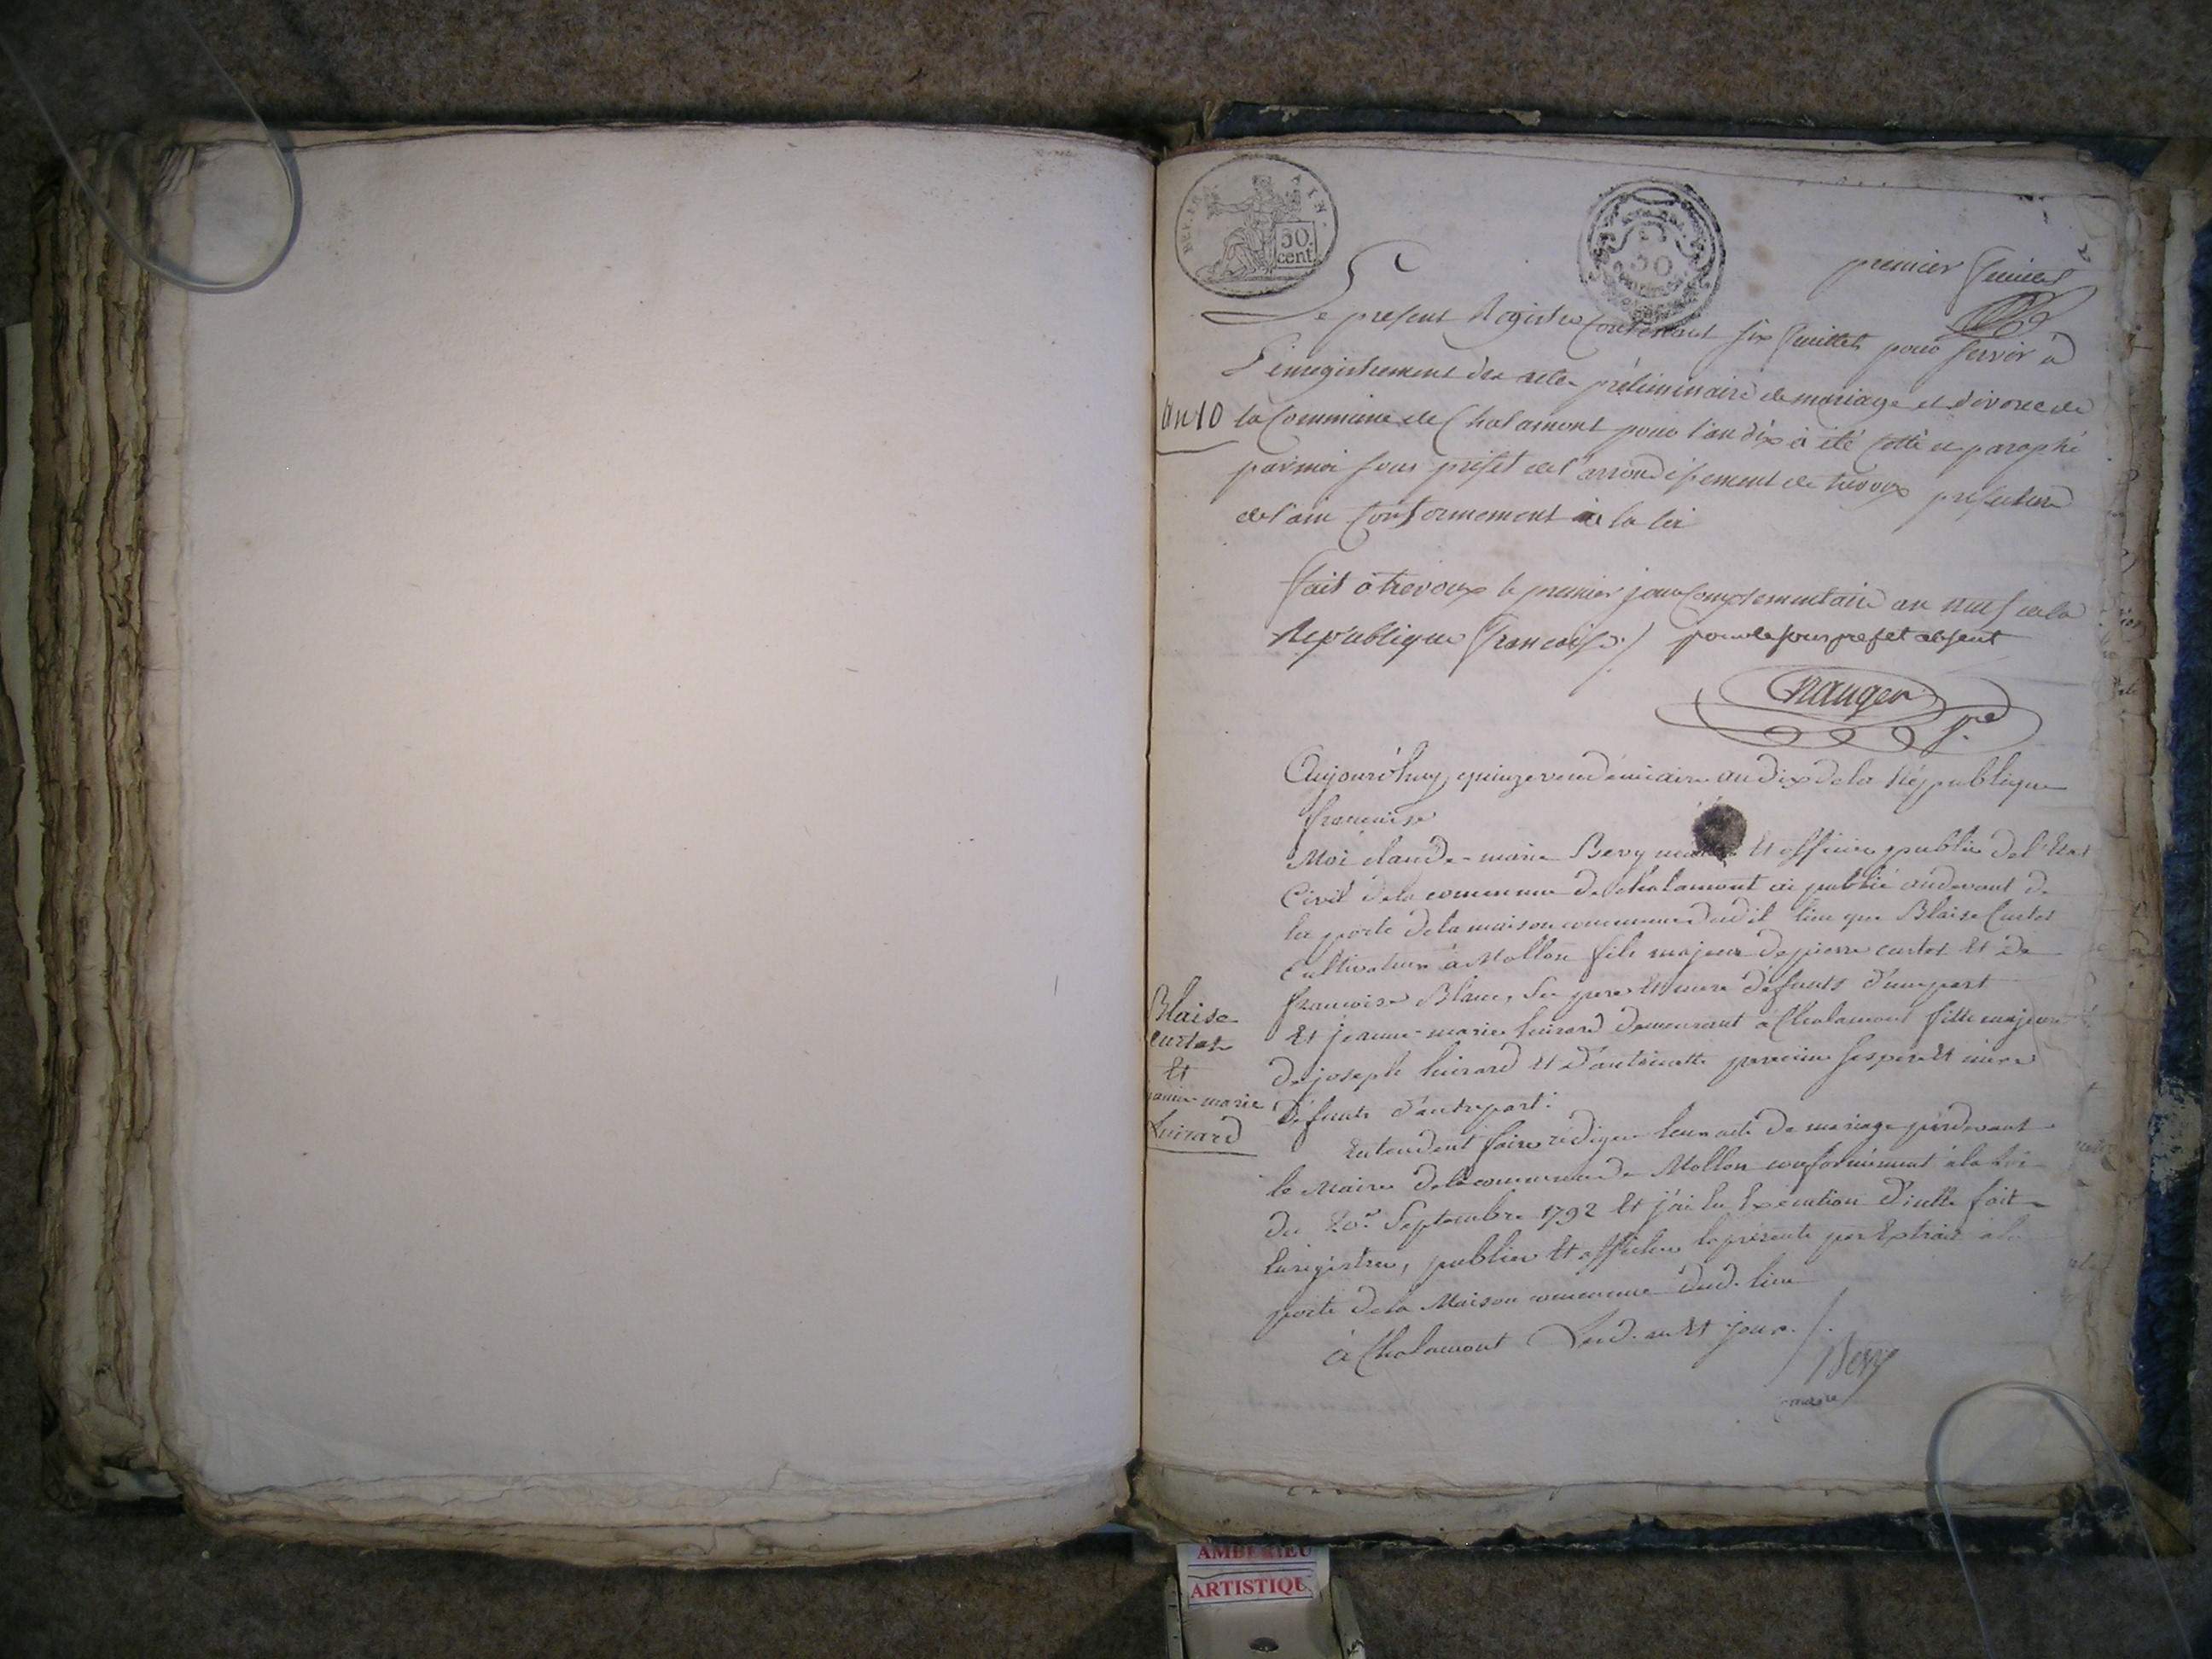 DEP. LE AIN.
50
cent
50
premier feuillet
Le present Registre Contenant six feuillets pour servir à
L'enregistrement des actes préliminaire de mariage et divorce de
an 10
la Commune de Chalamont pour l'an dix à été Cotté et paraphé
par moi sous préfet de l'arrondissement de trevoux prefecture
de l'ain Conformement à la loi
fait à trevoux le premier jour Complementaire an neuf de la
Republique francaise ./. pour le sous prefet absent
Aujourd'huy, quinze vendémiaire an dix de la République
francaise
Moi claude-marie Bevy maire Et officier public de l'Etat
Civil de la commune de chalamont ai publié audevant de
la porte de la maison commune dudit lieu que Blaise Curtet
Cultivateur à Mollon fils majeur de pierre curtet Et de
francoise Blanc, ses pere Et mere défunts d'une part
Et jeanne-marie Luirard demeurant à Chalamont fille majeure
de joseph Luirard Et d'antoinette ses pere Et mere
Défunts d'autre part.
Blaise
curtet
Et
jeanne-marie
Luirard
Entendent faire rédiger leur acte de mariage pardevant
le Maire de la commune de Mollon conformément à la loi
du 20e. Septembre 1792 Et j'ai En Exécution d'icelle fait
Enregistrer, publier Et afficher la présente par Extrait à la
porte de la Maison commune dud. lieu
à Chalamont Lesd. an Et jour ./.
Bevy
maire
AMBERIEU
ARTISTIQU